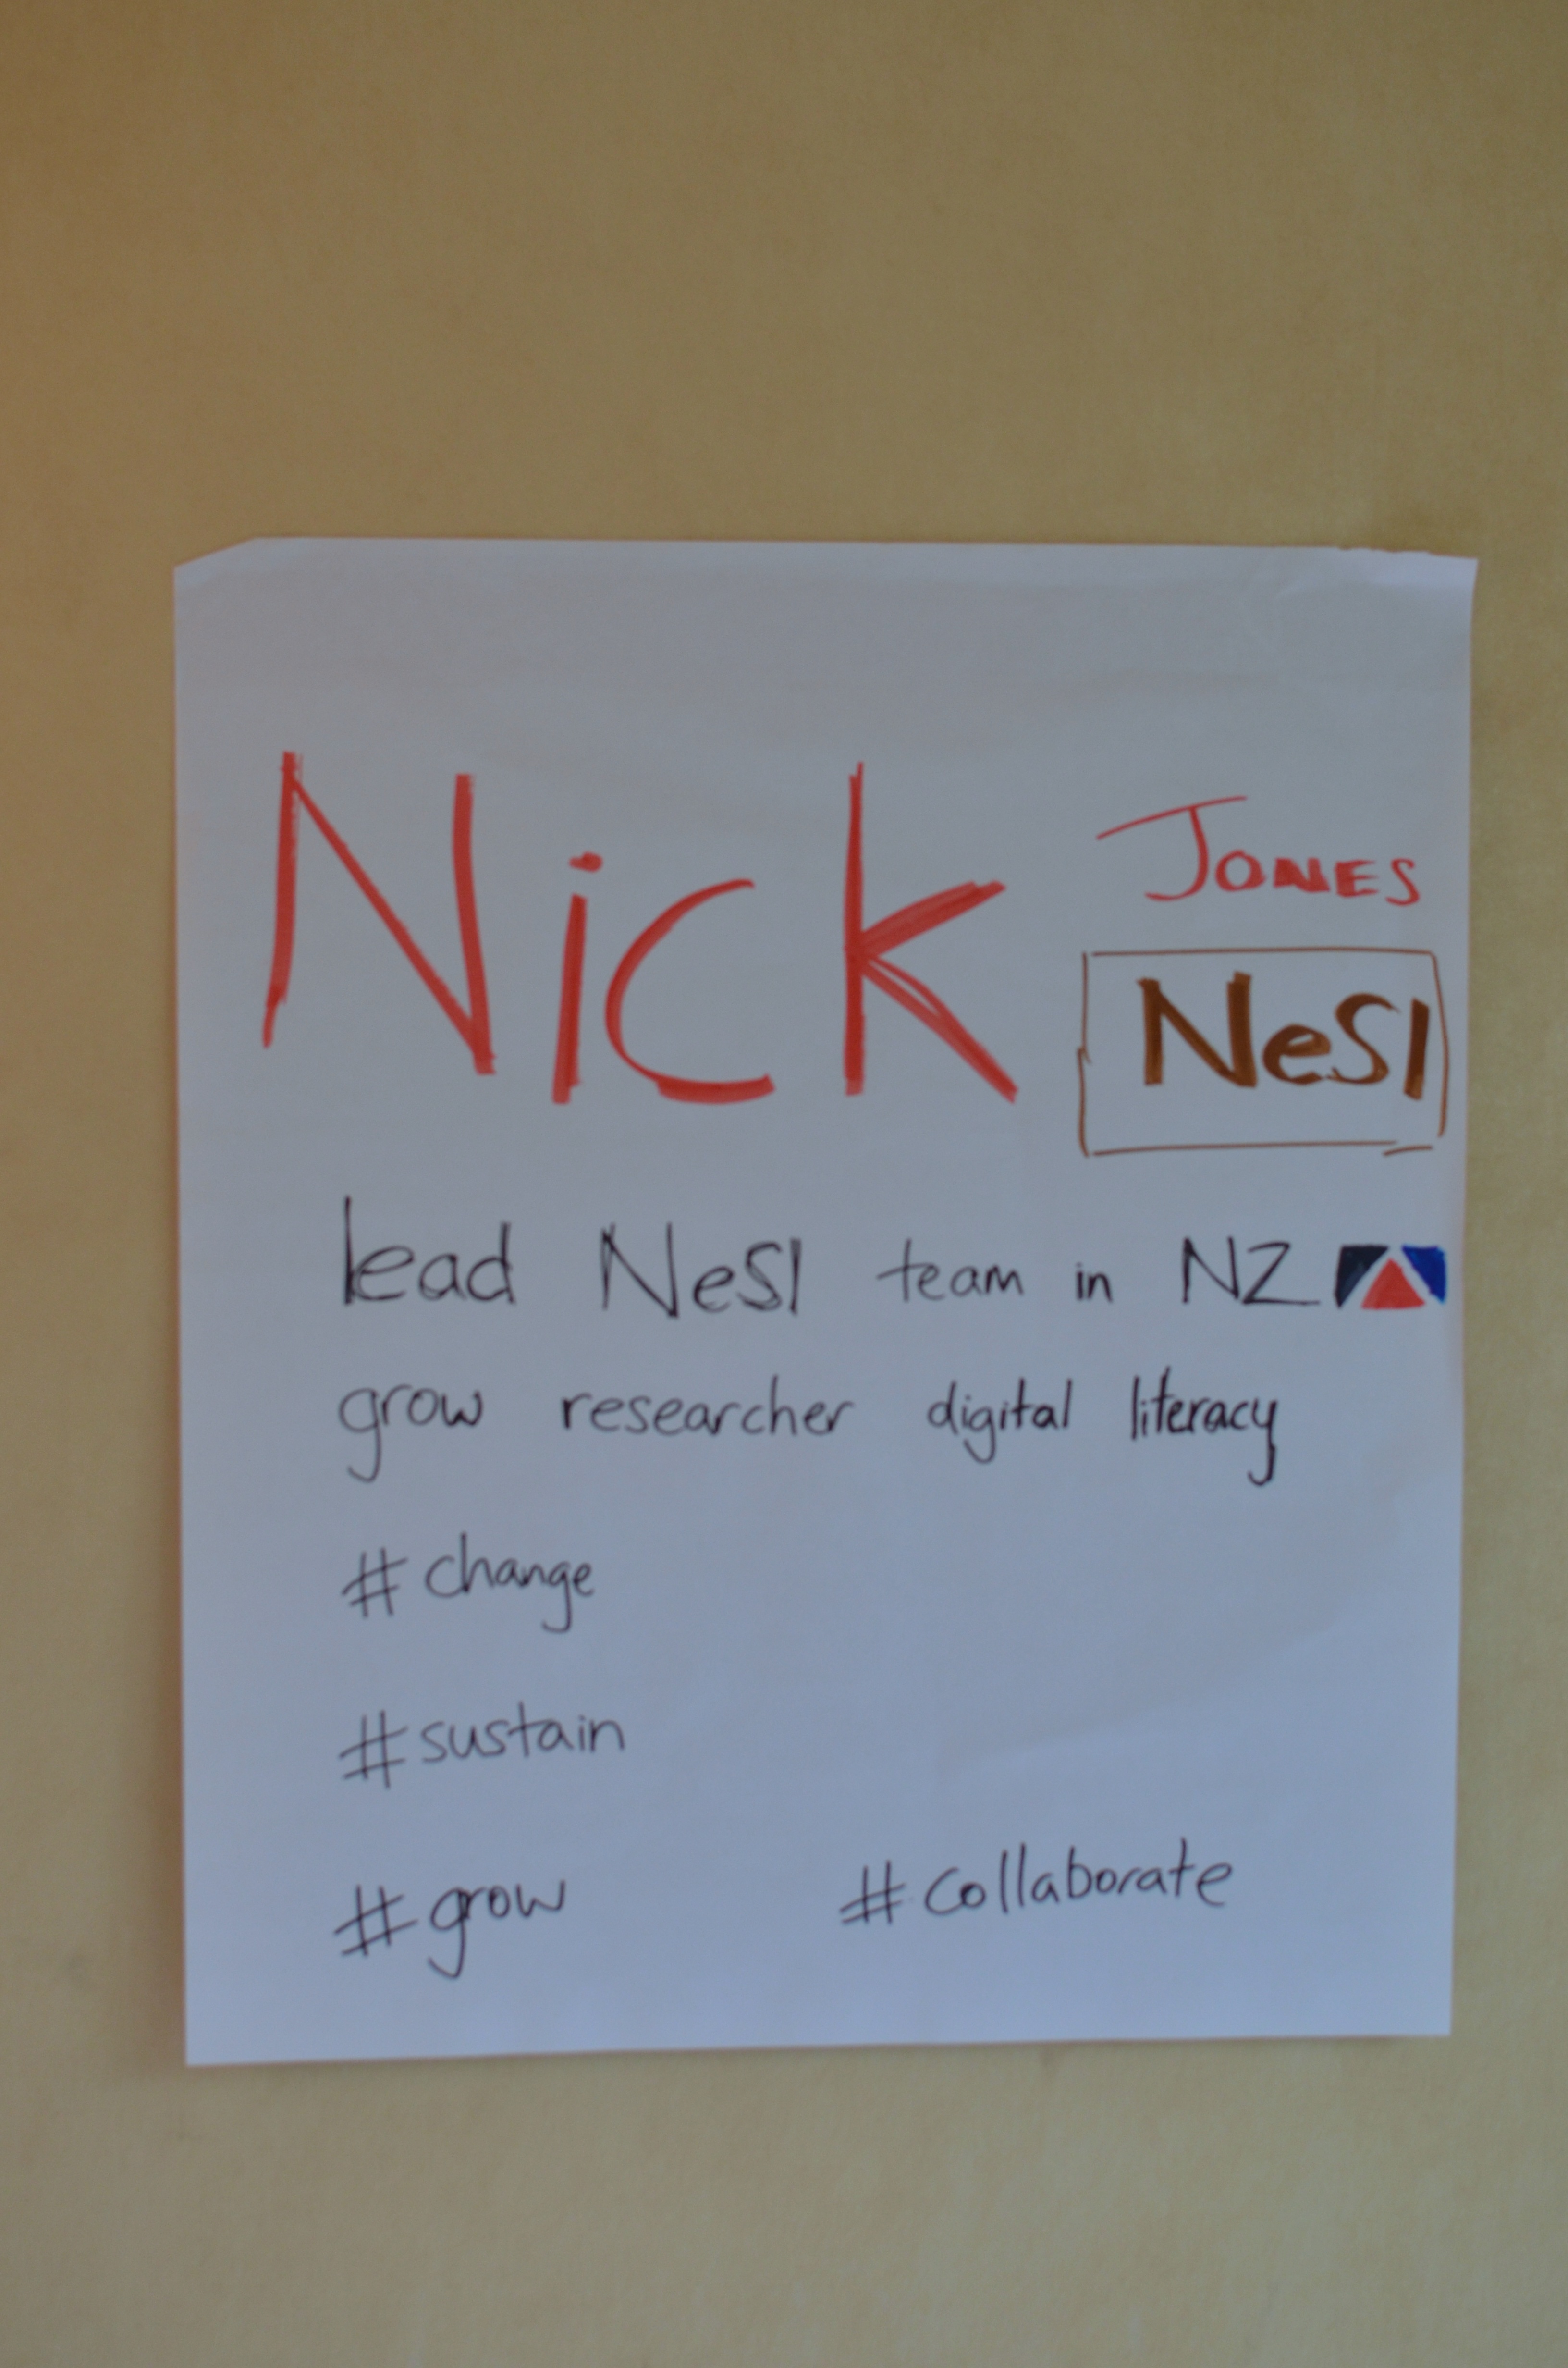 Nick
JONES
NeSI
lead NeSI team in NZ
grow researcher digital literacy
#change
#sustain
#grow #collaborate